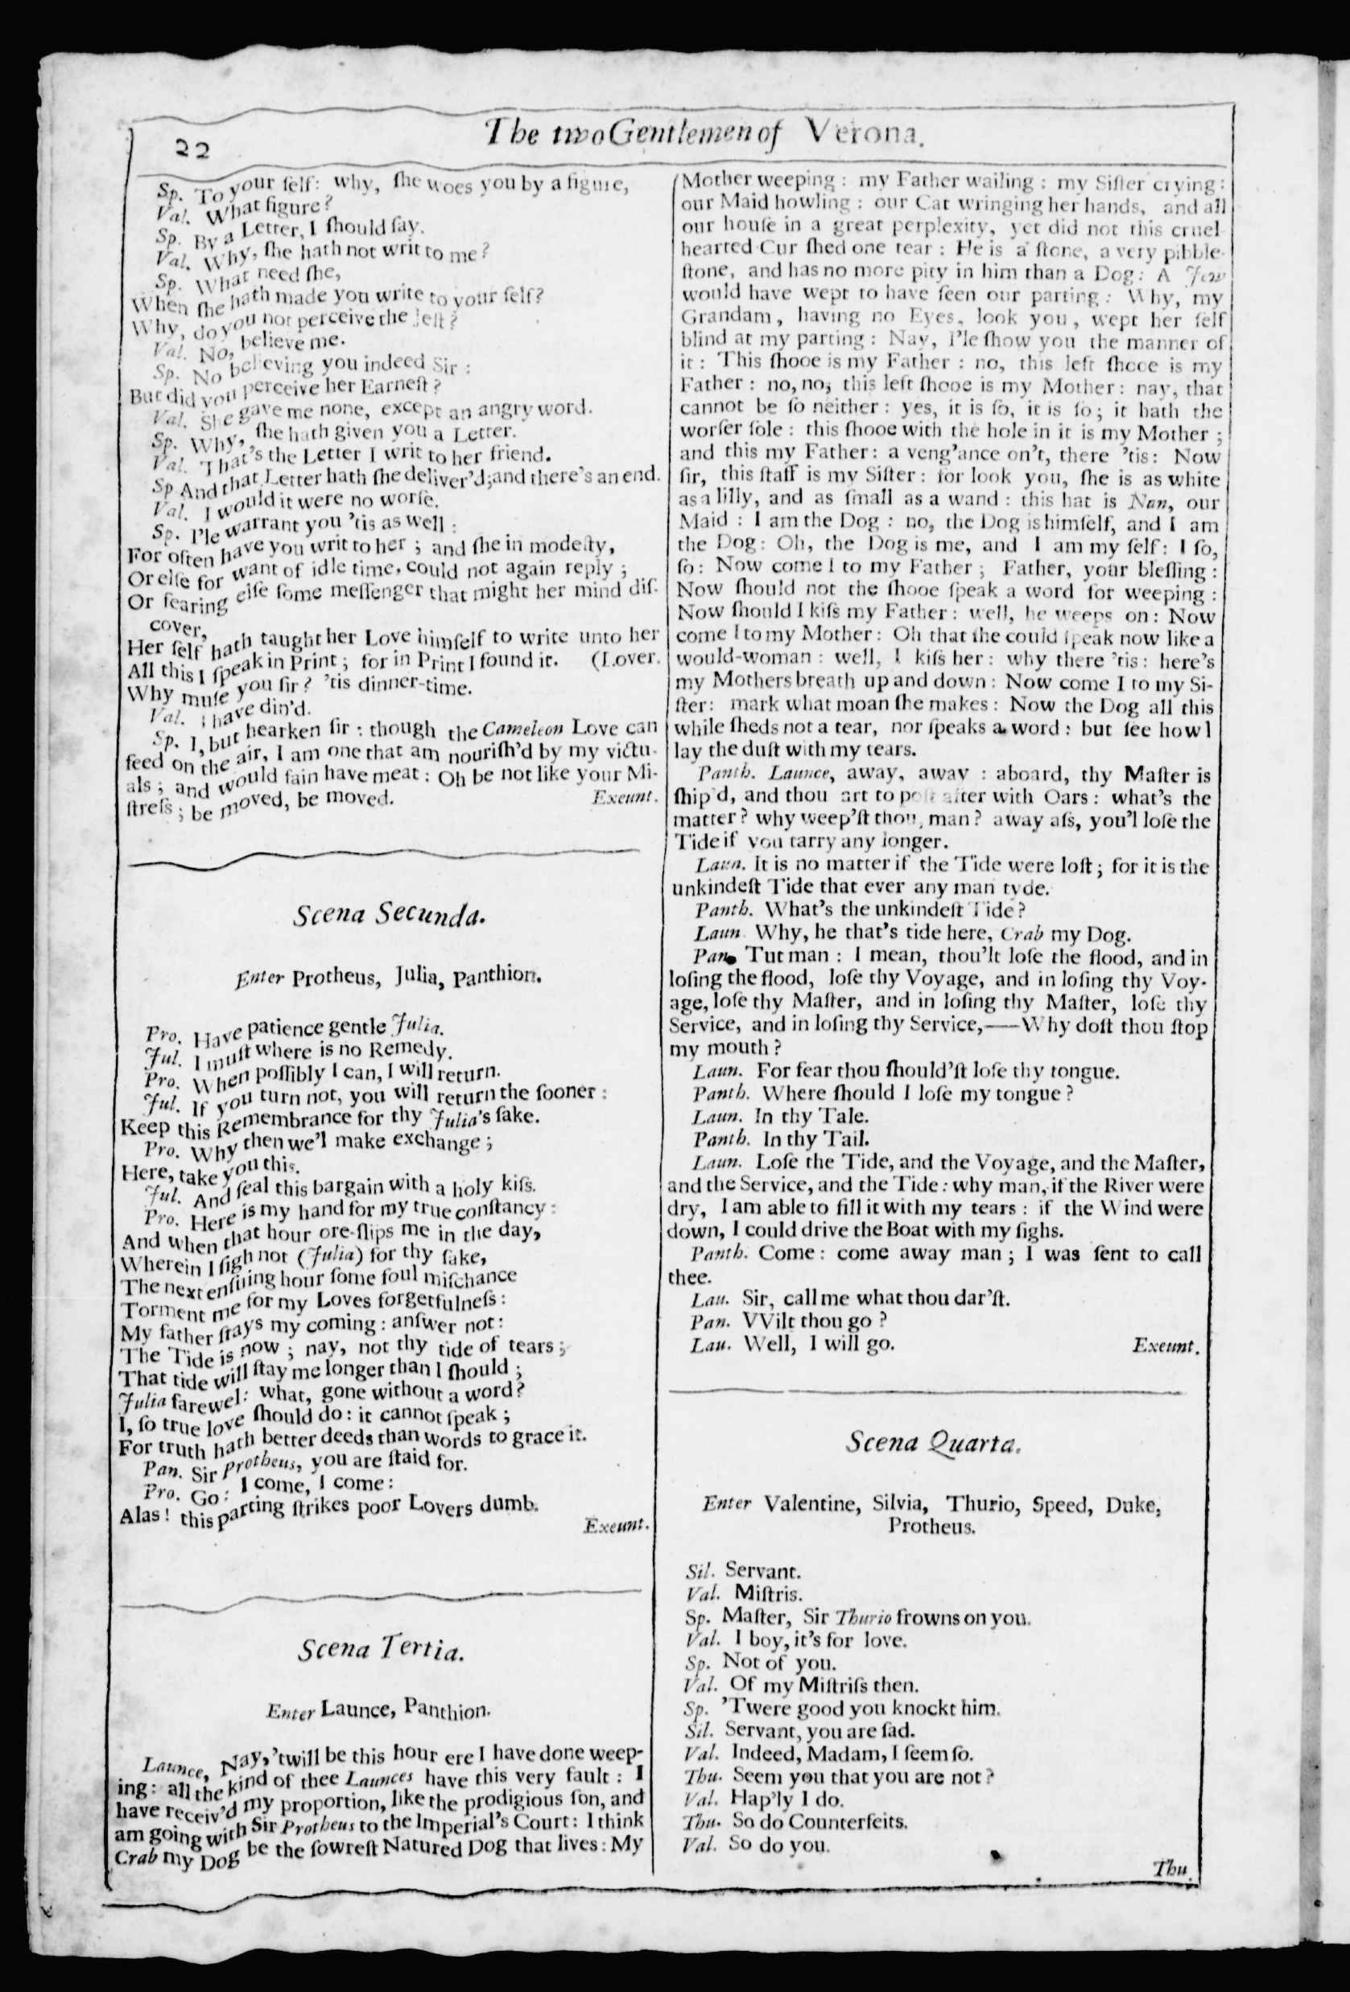 22
The two Gentlemen of Verona.
Sp. To your ſelf: why, ſhe woes you by a figure,
Val. What figure?
Sp. By a Letter, I ſhould ſay.
Val. Why, ſhe hath not writ to me?
Sp. What need ſhe,
When ſhe hath made you write to your ſelf?
Why, do you not perceive the Jeſt?
Val. No, believe me.
Sp. No believing you indeed Sir:
But did you perceive her Earneſt?
Val. She gave me none, except an angry word.
Sp. Why, ſhe hath given you a Letter.
Val. That's the Letter I writ to her friend.
Sp And that Letter hath ſhe deliver'd; and there's an end.
Val. I would it were no worſe.
Sp. I'le warrant you 'tis as well:
For often have you writ to her; and ſhe in modeſty,
Or elſe for want of idle time, could not again reply;
Or fearing elſe ſome meſſenger that might her mind diſ-
cover,
Her ſelf hath taught her Love himſelf to write unto her
All this I ſpeak in Print; for in Print I found it. (Lover.
Why muſe you ſir? 'tis dinner-time.
Val. I have din'd.
Sp. I, but hearken ſir: though the Cameleon Love can
feed on the air, I am one that am nouriſh'd by my victu-
als; and would fain have meat: Oh be not like your Mi-
ſtreſs; be moved, be moved. Exeunt.
Scena Secunda.
Enter Protheus, Julia, Panthion.
Pro. Have patience gentle Julia.
Jul. I muſt where is no Remedy.
Pro. When poſſibly I can, I will return.
Jul. If you turn not, you will return the ſooner:
Keep this Remembrance for thy Julia's ſake.
Pro. Why then we'l make exchange;
Here, take you this.
Jul. And ſeal this bargain with a holy kiſs.
Pro. Here is my hand for my true conſtancy:
And when that hour ore-ſlips me in the day,
Wherein I ſigh not (Julia) for thy ſake,
The next enſuing hour ſome foul miſchance
Torment me for my Loves forgetfulneſs:
My father ſtays my coming: anſwer not:
The Tide is now; nay, not thy tide of tears;
That tide will ſtay me longer than I ſhould;
Julia farewel: what, gone without a word?
I, ſo true love ſhould do: it cannot ſpeak;
For truth hath better deeds than words to grace it.
Pan. Sir Protheus, you are ſtaid for.
Pro. Go: I come, I come:
Alas! this parting ſtrikes poor Lovers dumb.
Exeunt.
Scena Tertia.
Enter Launce, Panthion.
Launce, Nay, 'twill be this hour ere I have done weep-
ing: all the kind of thee Launces have this very fault: I
have receiv'd my proportion, like the prodigious ſon, and
am going with Sir Protheus to the Imperial's Court: I think
Crab my Dog be the ſowreſt Natured Dog that lives: My
Mother weeping: my Father wailing: my Siſter crying:
our Maid howling: our Cat wringing her hands, and all
our houſe in a great perplexity, yet did not this cruel
hearted Cur ſhed one tear: He is a ſtone, a very pibble-
ſtone, and has no more pity in him than a Dog: A Jew
would have wept to have ſeen our parting: Why, my
Grandam, having no Eyes, look you, wept her ſelf
blind at my parting: Nay, I'le ſhow you the manner of
it: This ſhooe is my Father: no, this left ſhooe is my
Father: no, no, this left ſhooe is my Mother: nay, that
cannot be ſo neither: yes, it is ſo, it is ſo; it hath the
worſer ſole: this ſhooe with the hole in it is my Mother;
and this my Father: a veng'ance on't, there 'tis: Now
ſir, this ſtaff is my Siſter: for look you, ſhe is as white
as a lilly, and as ſmall as a wand: this hat is Nan, our
Maid: I am the Dog: no, the Dog is himſelf, and I am
the Dog: Oh, the Dog is me, and I am my ſelf: I ſo,
ſo: Now come I to my Father; Father, your bleſſing:
Now ſhould not the ſhooe ſpeak a word for weeping:
Now ſhould I kiſs my Father: well, he weeps on: Now
come I to my Mother: Oh that ſhe could ſpeak now like a
would-woman: well, I kiſs her: why there 'tis: here's
my Mothers breath up and down: Now come I to my Si-
ſter: mark what moan ſhe makes: Now the Dog all this
while ſheds not a tear, nor ſpeaks a word: but ſee how I
lay the duſt with my tears.
Panth. Launce, away, away: aboard, thy Maſter is
ſhip'd, and thou art to poſt after with Oars: what's the
matter? why weep'ſt thou, man? away aſs, you'l loſe the
Tide if you tarry any longer.
Laun. It is no matter if the Tide were loſt; for it is the
unkindeſt Tide that ever any man tyde.
Panth. What's the unkindeſt Tide?
Laun Why, he that's tide here, Crab my Dog.
Pan. Tut man: I mean, thou'lt loſe the flood, and in
loſing the flood, loſe thy Voyage, and in loſing thy Voy-
age, loſe thy Maſter, and in loſing thy Maſter, loſe thy
Service, and in loſing thy Service,—Why doſt thou ſtop
my mouth?
Laun. For fear thou ſhould'ſt loſe thy tongue.
Panth. Where ſhould I loſe my tongue?
Laun. In thy Tale.
Panth. In thy Tail.
Laun. Loſe the Tide, and the Voyage, and the Maſter,
and the Service, and the Tide: why man, if the River were
dry, I am able to fill it with my tears: if the Wind were
down, I could drive the Boat with my ſighs.
Panth. Come: come away man; I was ſent to call
thee.
Lau. Sir, call me what thou dar'ſt.
Pan. VVilt thou go?
Lau. Well, I will go. Exeunt.
Scena Quarta.
Enter Valentine, Silvia, Thurio, Speed, Duke,
Protheus.
Sil. Servant.
Val. Miſtris.
Sp. Maſter, Sir Thurio frowns on you.
Val. I boy, it's for love.
Sp. Not of you.
Val. Of my Miſtriſs then.
Sp. 'Twere good you knockt him.
Sil. Servant, you are ſad.
Val. Indeed, Madam, I ſeem ſo.
Thu. Seem you that you are not?
Val. Hap'ly I do.
Thu. So do Counterfeits.
Val. So do you.
Thu.